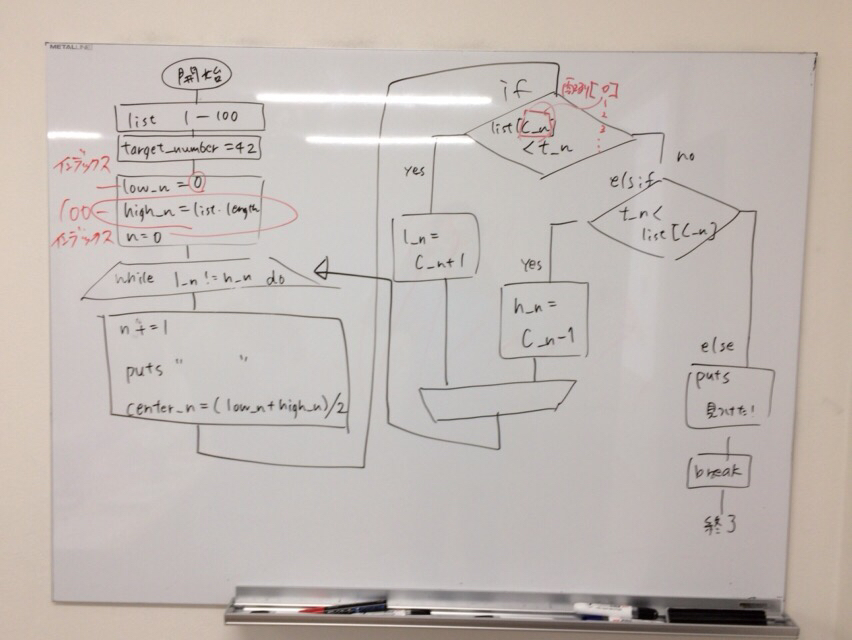 METALLINE
開始
list 1-100
target_number = 42
インデックス
low_n = 0
100
high_n = list.length
インデックス
n = 0
while l_n != h_n do
n += 1
puts " "
center_n = (low_n + high_n)/2
if
配列[0]
1
2
3
list[C_n]
< t_n
yes
no
l_n =
C_n+1
elsif
t_n <
list[C_n]
yes
h_n =
C_n-1
else
puts
見つけた!
break
終了